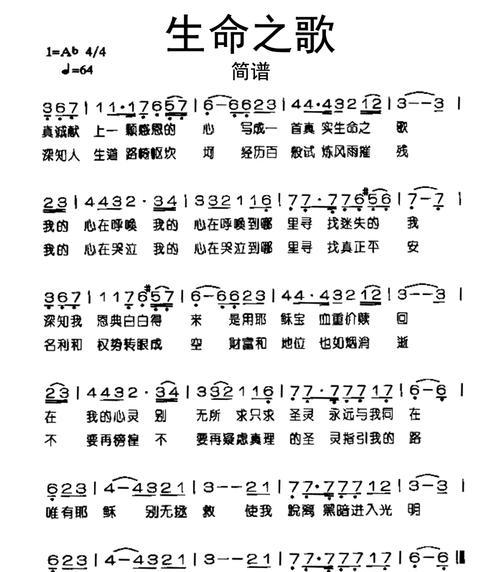 生命之歌
1=Ab 4/4
♩=64
简谱
367|11·17657|6-6623|44·43212|3--3|
真诚献 上一 颗感恩的 心 写成一 首真 实生命之 歌
深知人 生道 路崎岖坎 坷 经历百 般试 炼风雨摧 残
23|4432·34|332116|77·776#56|7-7|
我的 心在呼唤 我的 心在呼唤到哪 里寻 找迷失的 我
我的 心在哭泣 我的 心在哭泣到哪 里寻 找真正平 安
367|1176#57|6-6623|44·43212|3--3|
深知我 恩典白白得 来 是用耶 稣宝 血重价赎 回
名利和 权势转眼成 空 财富和 地位 也如烟消 逝
23|4432·34|332116|77·77717|6-6|
在 我的心灵 别 无所 求只求 圣灵 永远与我同 在
不 要再徬徨 不 要再疑虑真理 的圣 灵指引我的 路
623|4-4321|3--21|77·77717|6-3|
唯有耶 稣 别无拯 救 使我 脱离 黑暗进入光 明
623|4-4321|3--21|77·77717|6-6‖